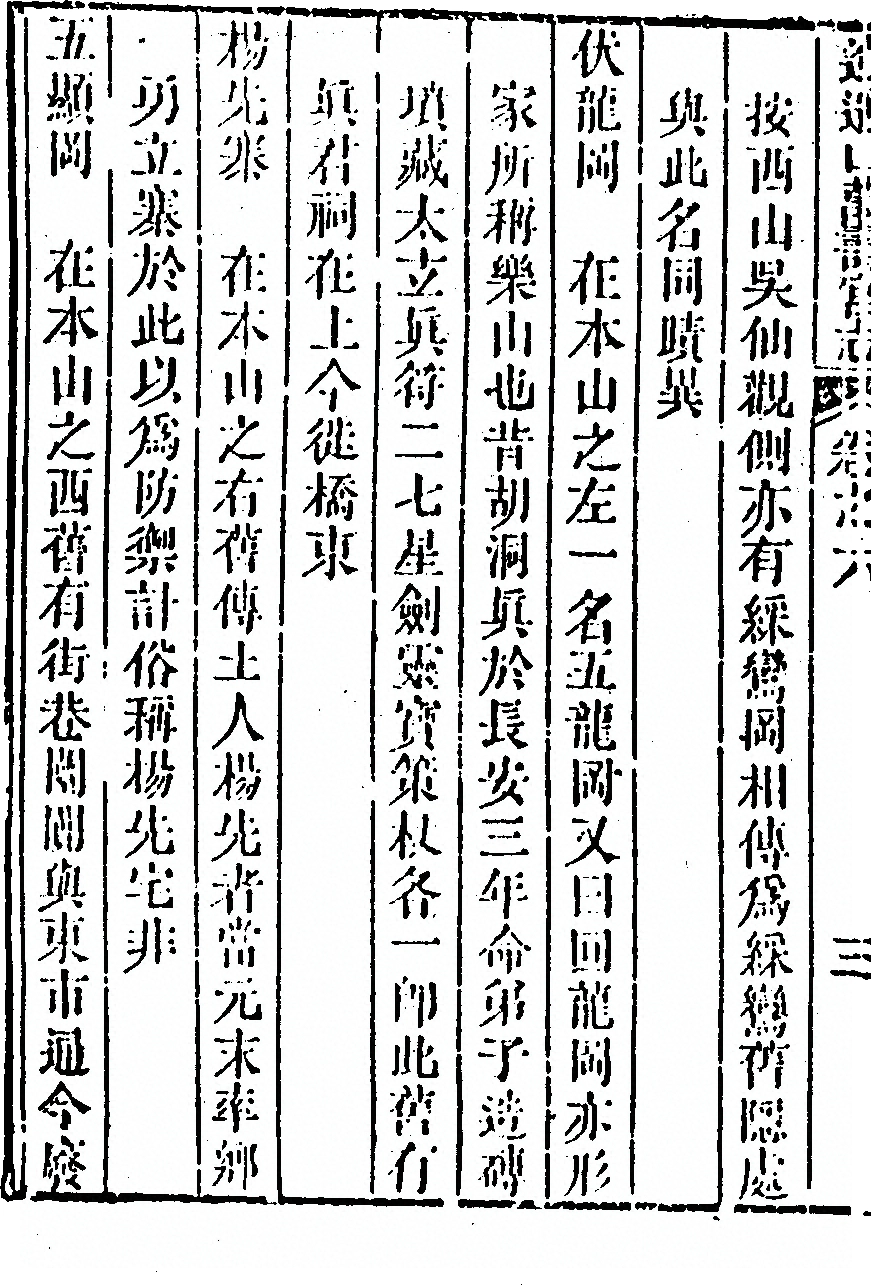 逍遙山萬壽宮志 卷之六 三
按西山吳仙觀側亦有綵鸞岡相傳爲綵鸞舊隱處
與此名同蹟異
伏龍岡 在本山之左一名五龍岡又曰回龍岡亦形
家所稱樂山也昔胡洞眞於長安三年命弟子造磚
墳藏太立眞符二七星劍靈寶策杖各一卽此舊有
眞君祠在上今徙橋東
楊先寨 在本山之右舊傳土人楊先者當元末率鄉
勇立寨於此以爲防禦計俗稱楊先宅非
五顯岡 在本山之西舊有街巷闤闠與東市通今廢